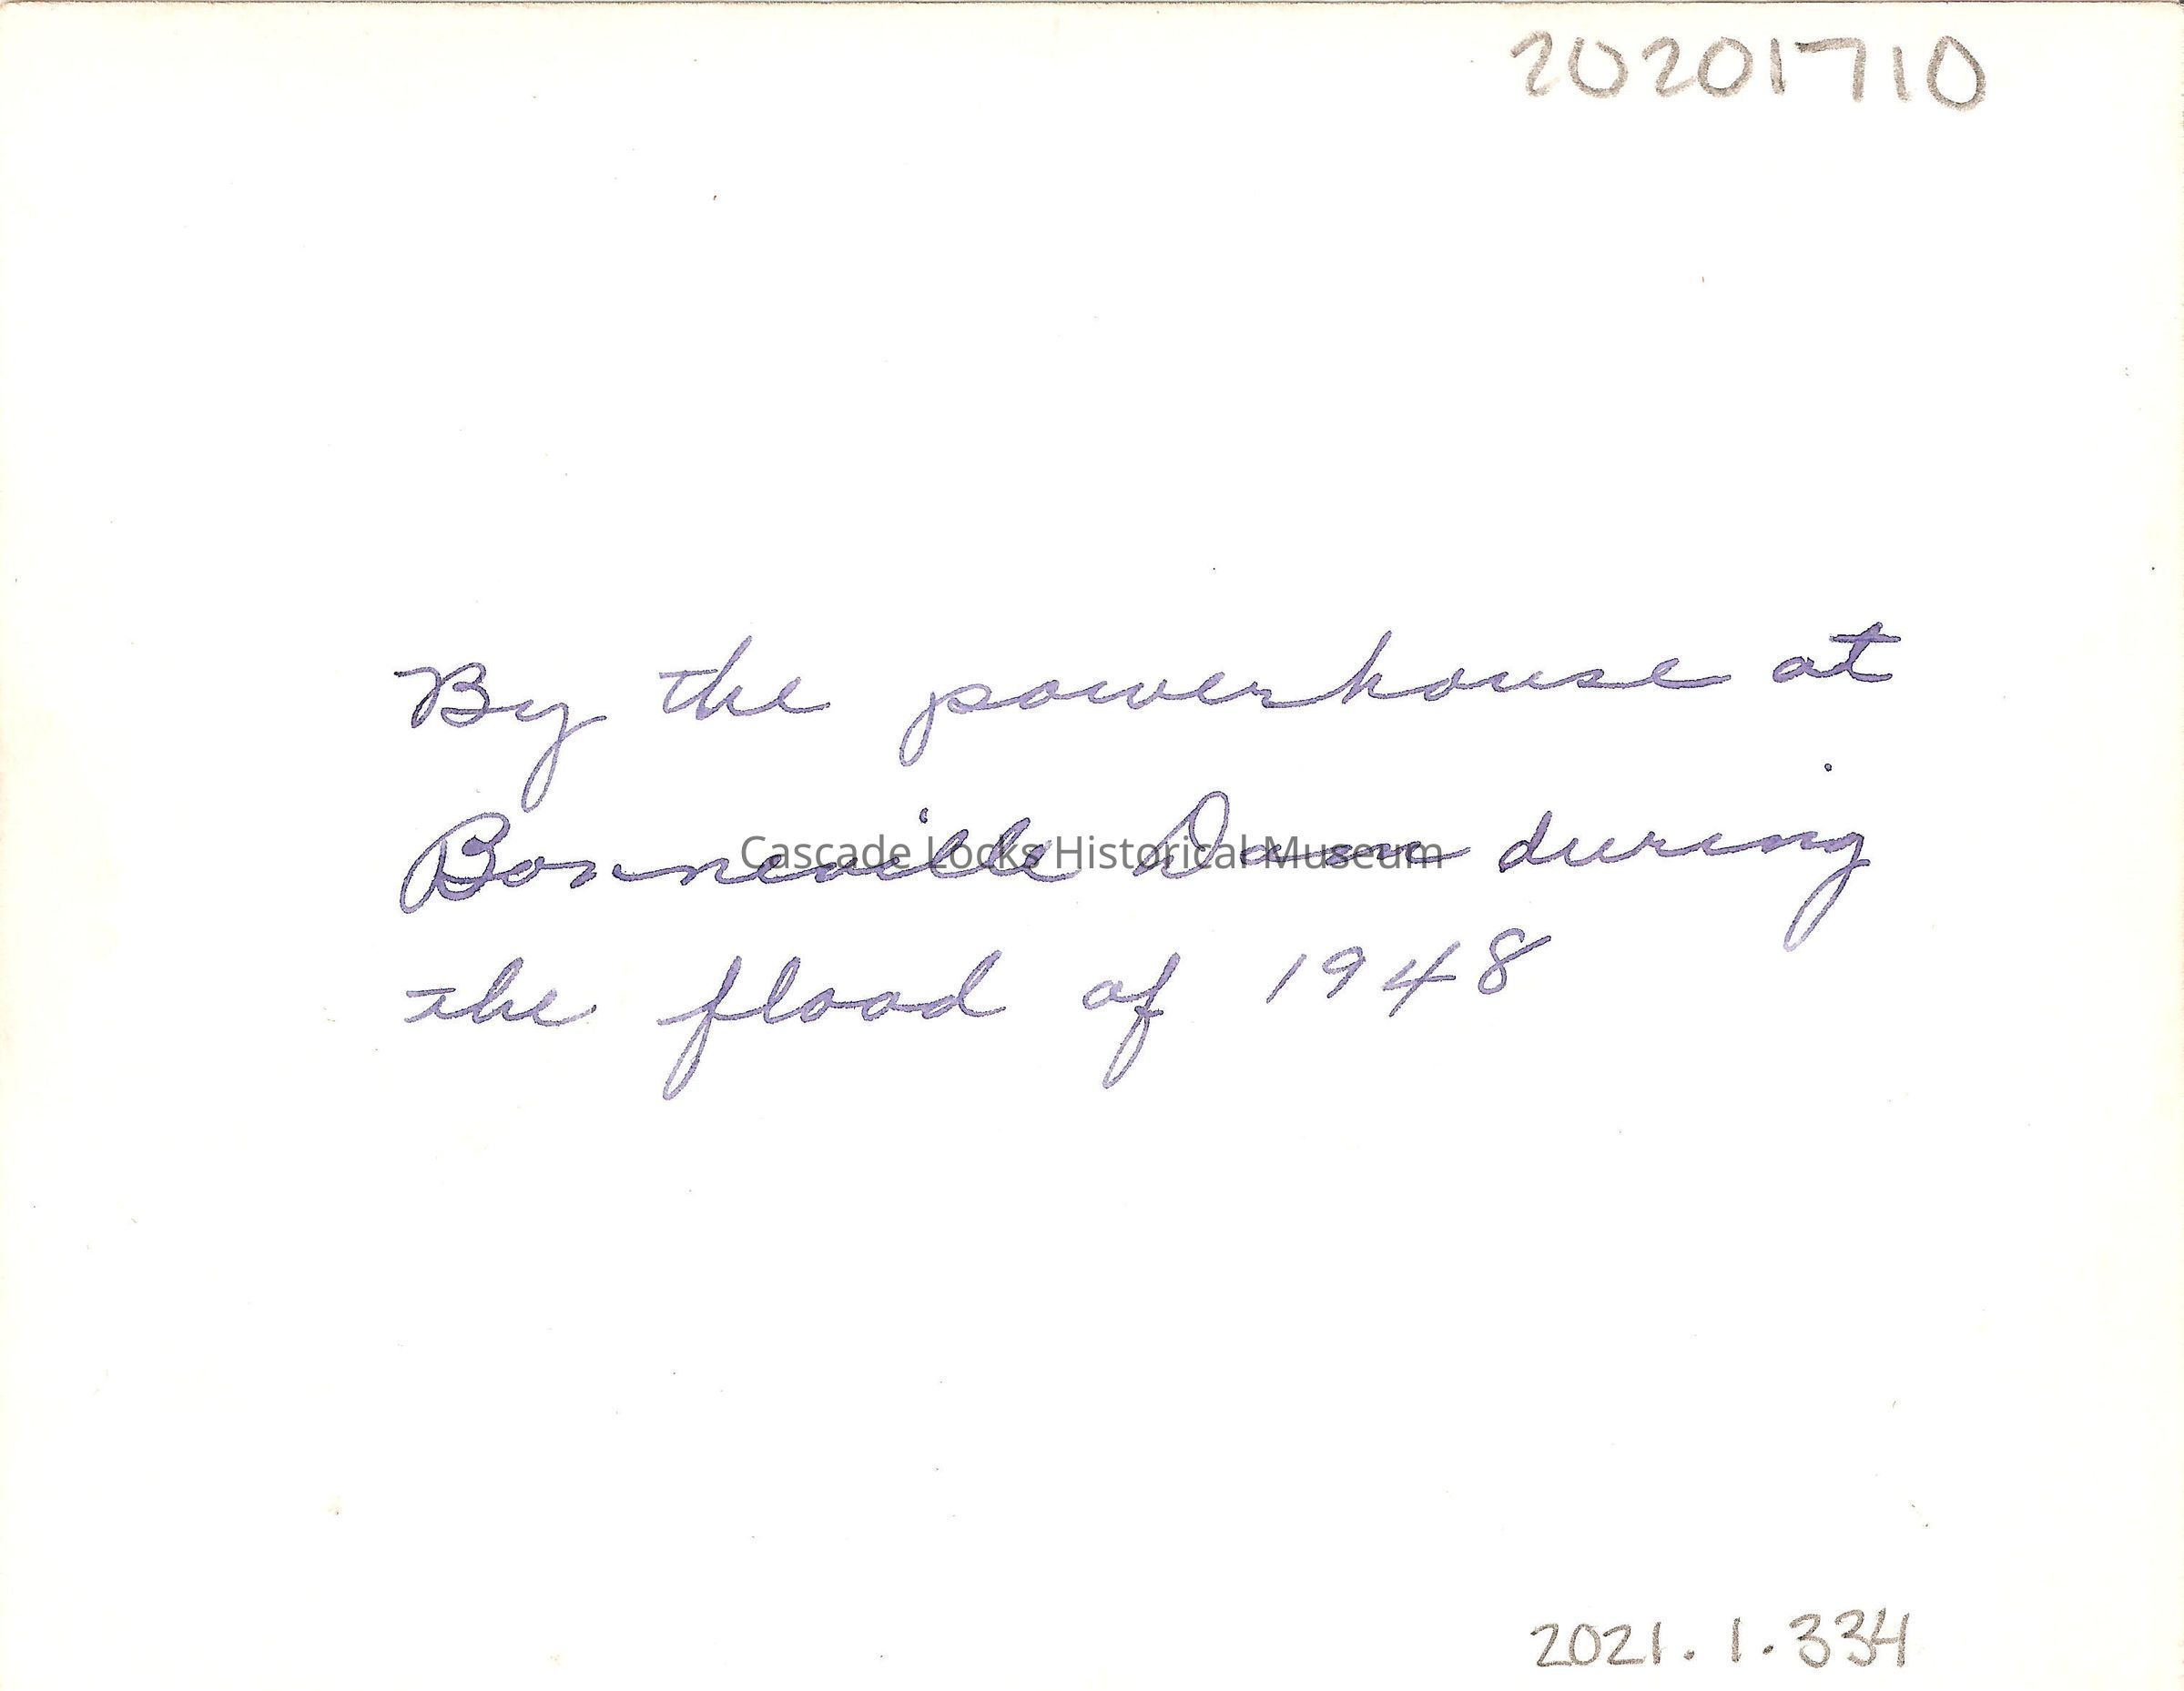 20201710
By the powerhouse at
Bonneville Dam during
Cascade Locks Historical Museum
the flood of 1948
2021.1.334